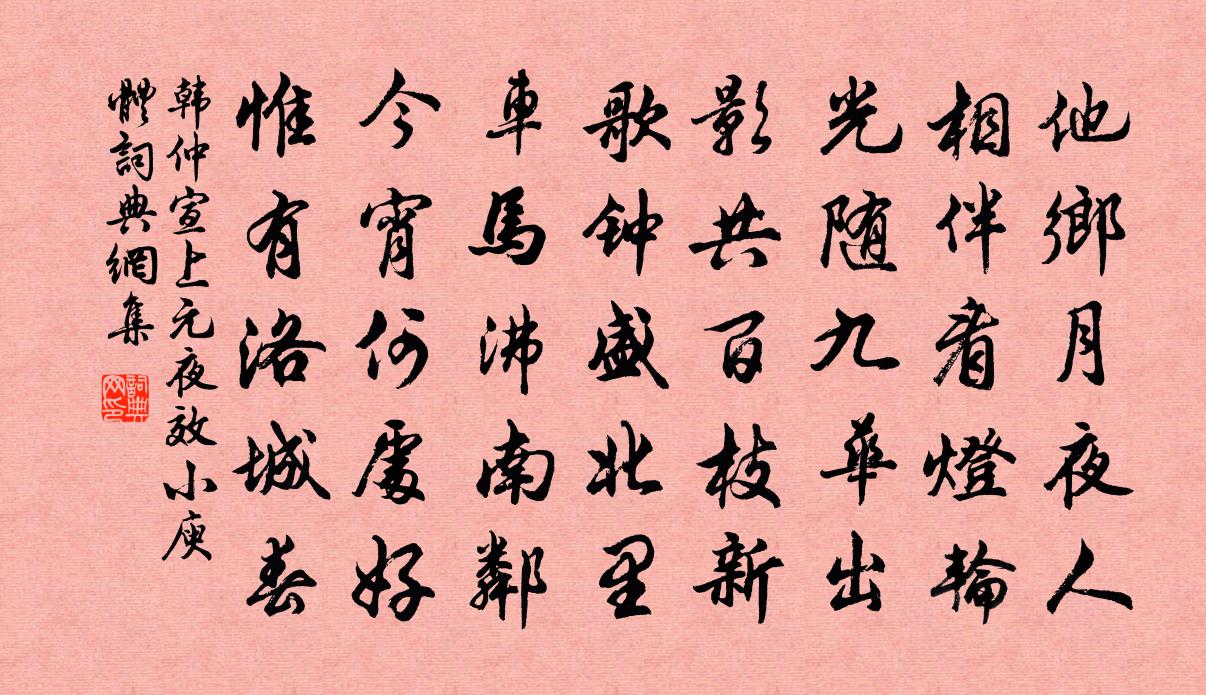 他鄉月夜人
相伴看燈輪
光随九華出
影共百枝新
歌钟盛北里
車馬沸南鄰
今宵何處好
惟有洛城春
韩仲宣上元夜效小庾
體詞典網集
詞典
网印